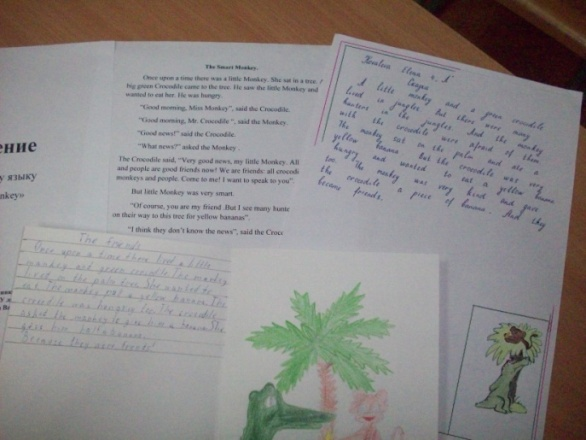 ение
у языку
nkey»
The Smart Monkey.
Once upon a time there was a little Monkey. She sat in a tree
big green Crocodile came to the tree. He saw the little Monkey and
wanted to eat her. He was hungry.
"Good morning, Miss Monkey", said the Crocodile.
"Good morning, Mr. Crocodile ", said the Monkey.
"Good news!" said the Crocodile.
"What news?" asked the Monkey .
The Crocodile said, "Very good news, my little Monkey. All
and people are good friends now! We are friends: all crocodi
monkeys and people. Come to me! I want to speak to you".
But little Monkey was very smart.
"Of course, you are my friend .But I see many hunte
on their way to this tree for yellow bananas".
"I think they don't know the news", said the Croc
A little monkey and a green crocodile
lived in jungles. But there were many
hunters in the jungles. And the monkey
with the crocodile were afraid of them.
The monkey sat in the palm and ate a
yellow banana. But the crocodile was very
hungry and wanted to eat a yellow banana
too. The monkey was very kind and gave
the crocodile a piece of banana. And they
became friends.
The friends
Once upon a time there lived a little
monkey and green crocodile. The monkey
lived in the palm tree. She wanted to
eat. The monkey a yellow banana. The
crocodile was hungry too. The crocodile
asked the monkey to give him a banana. She
gave him banana.
Because they were friends!